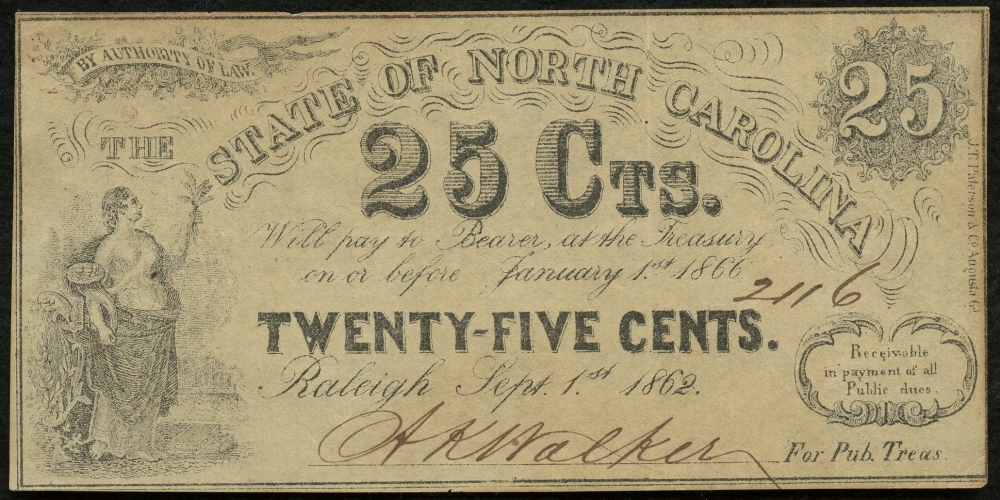 BY AUTHORITY OF LAW.
25
THE STATE OF NORTH CAROLINA
25 CTS.
Will pay to Bearer, at the Treasury
on or before January 1.st 1866
2116
TWENTY-FIVE CENTS.
Raleigh Sept. 1.st 1862.
Receivable
in payment of all
Public dues.
A K Walker
For Pub. Treas.
J.T. Paterson & Co Augusta Ga.